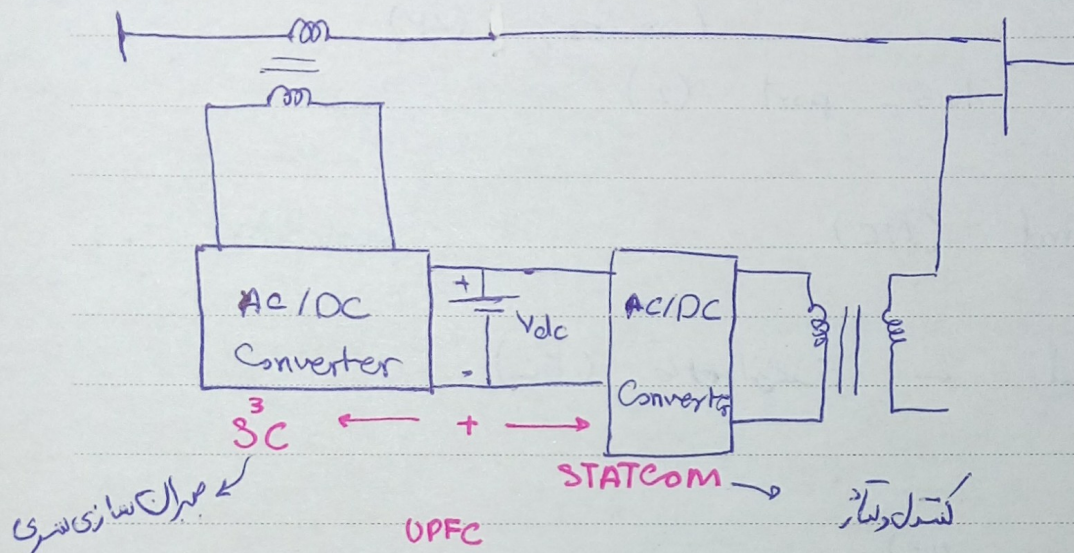 AC/DC
Converter
+
-
Vdc
AC/DC
Converter
S³C
+
STATCOM
جبران سازی سری
کنترل ولتاژ
UPFC